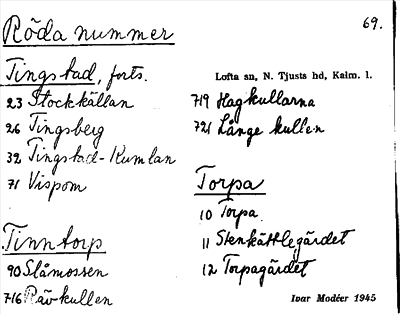 Röda nummer
69.
Tingstad, forts.
23 Stockkällan
26 Tingsberg
32 Tingstad-Kumlan
71 Vispom
Tinntorp
90 Slåmossen
716 Rävkullen
Lofta sn, N. Tjusts hd, Kalm. l.
719 Hagkullarna
721 Långe kullen
Torpa
10 Torpa
11 Stenkättlegärdet
12 Torpagärdet
Ivar Modéer 1945